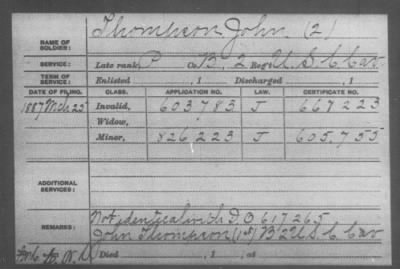 NAME OF SOLDIER: Thompson John (2)
SERVICE: Late rank, P Co. B, 2 Reg't U S C Cav
TERM OF SERVICE: Enlisted , 1 Discharged , 1
DATE OF FILING. CLASS. APPLICATION NO. LAW. CERTIFICATE NO.
1887 Mch 25 Invalid, 603783 J 667223
Widow,
Minor, 826223 J 605,755
ADDITIONAL SERVICES:
REMARKS: Not identical with I O 617265
John Thompson (1st) B 2 U S C Cav
Died , 1 , at